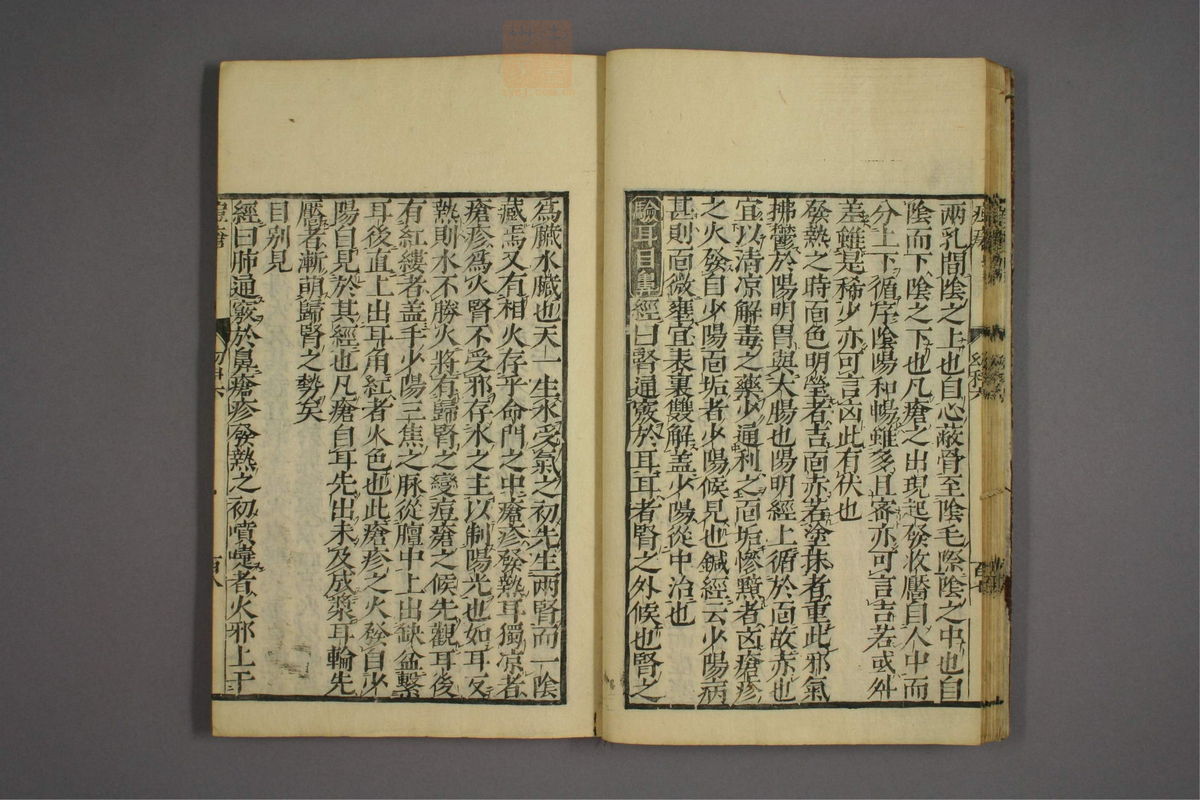 兩乳間陰之上也自心蔽骨至陰毛際陰之中也自
陰而下陰之下也凡瘡之出現起發收靨自人中而
分上下循序陰陽和暢雖多且密亦可言吉若或舛
差雖是稀少亦可言凶此有伏也
發熱之時面色明瑩者吉面赤若塗抹者重此邪氣
拂鬱於陽明胃與大腸也陽明經上循於面故赤也
宜以清凉解毒之藥少通利之面垢慘黯者凶瘡疹
之火發自少陽面垢者少陽候見也鍼經云少陽病
甚則面微塵宜表裏雙解盖少陽從中治也
驗耳目鼻經曰腎通竅於耳耳者腎之外候也腎之
為臓水臓也天一生水受氣之初先生兩腎而一陰
藏焉又有相火存乎命門之中瘡疹發熱耳獨凉者
瘡疹為火腎不受邪存水之主以制陽光也如耳反
熱則水不勝火將有歸腎之變痘瘡之候先觀耳後
有紅縷者盖手少陽三焦之脉從膻中上出缺盆繫
耳後直上出耳角紅者火色也此瘡疹之火發自少
陽自見於其經也凡瘡自耳先出未及成漿耳輪先
壓者漸萌歸腎之勢矣
目別見
經曰肺通竅於鼻瘡疹發熱之初噴嚏者火邪上干